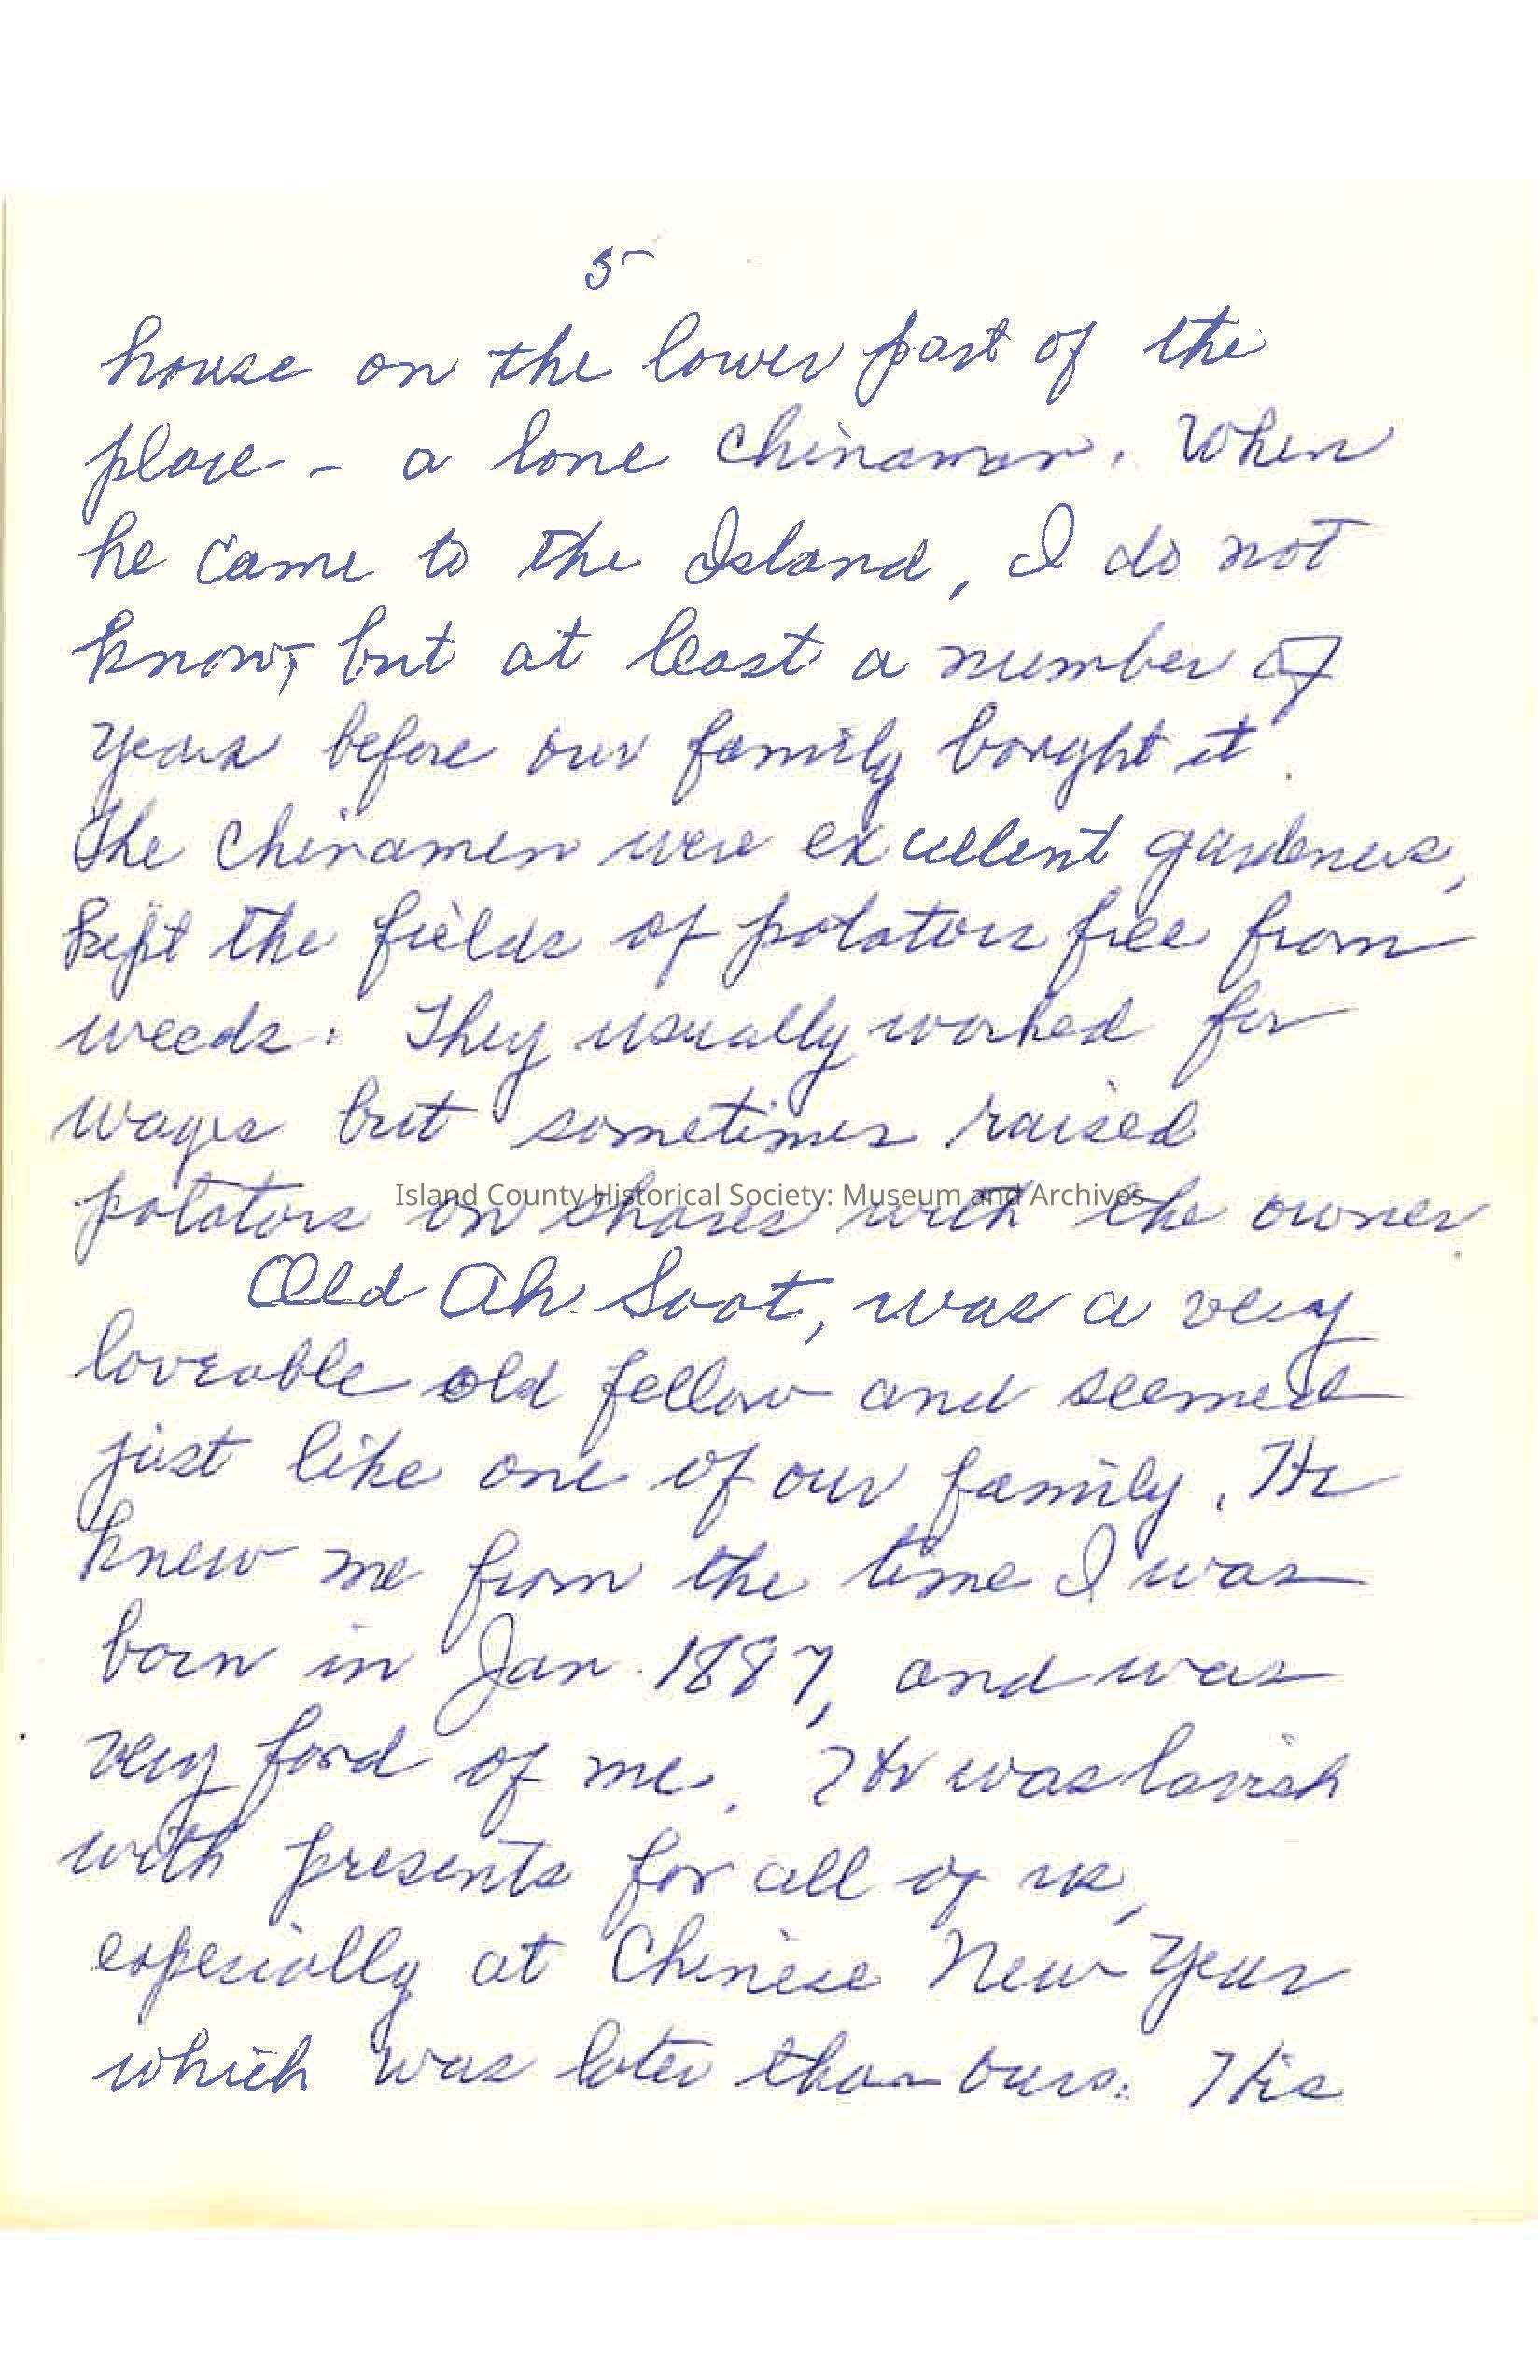 5
house on the lower part of the
place - a lone Chinaman. When
he came to the Island, I do not
know, but at least a number of
years before our family bought it.
The Chinamen were excellent gardeners,
kept the fields of potatoes free from
weeds. They usually worked for
wages but sometimes raised
potatoes on shares with the owner.
Island County Historical Society: Museum and Archives
Old Ah Soot, was a very
loveable old fellow and seemed
just like one of our family. He
knew me from the time I was
born in Jan. 1887, and was
very fond of me. He was lavish
with presents for all of us,
especially at Chinese New Year
which was later than ours. His